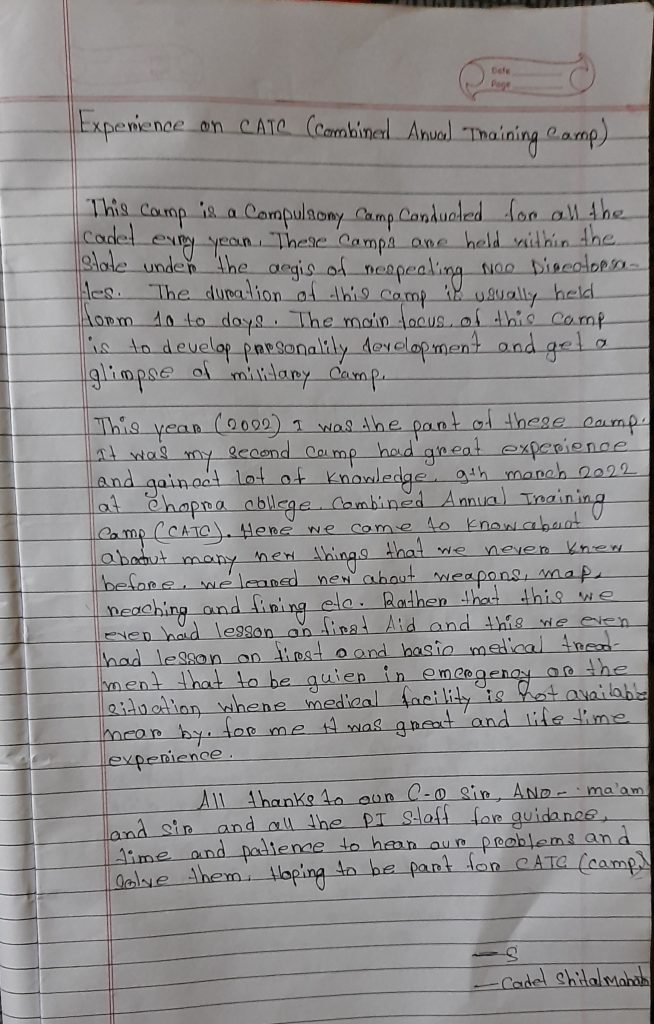 Date
Page
Experience on CATC (Combined Anual Training Camp)
This Camp is a Compulsory Camp Conducted for all the
cadet evry year. These Camps are held within the
State under the aegis of respecting NCC Directora-
tes. The duration of this camp is usually held
form 10 to days. The main focus of this camp
is to develop personality development and get a
glimpse of military Camp.
This year (2022) I was the part of these camp.
it was my second camp had great experience
and gain act lot of knowledge. 9th march 2022
at Chopra college. Combined Annual Training
Camp (CATC). Here we came to know abaut
about many new things that we never knew
before. we leaned new about weapons, map,
reaching and firing etc. Rather that this we
even had lesson on first Aid and this we even
had lesson on first a and basic medical treat-
ment that to be guier in emergency or the
situation where medical facility is not available
near by. for me it was great and life time
experience.
All thanks to our C-O Sir, ANO - ma'am
and sir and all the PI Staff for guidance,
time and patience to hear our problems and
solve them. Hoping to be part for CATC (camp)
— S
— Cadet Shital